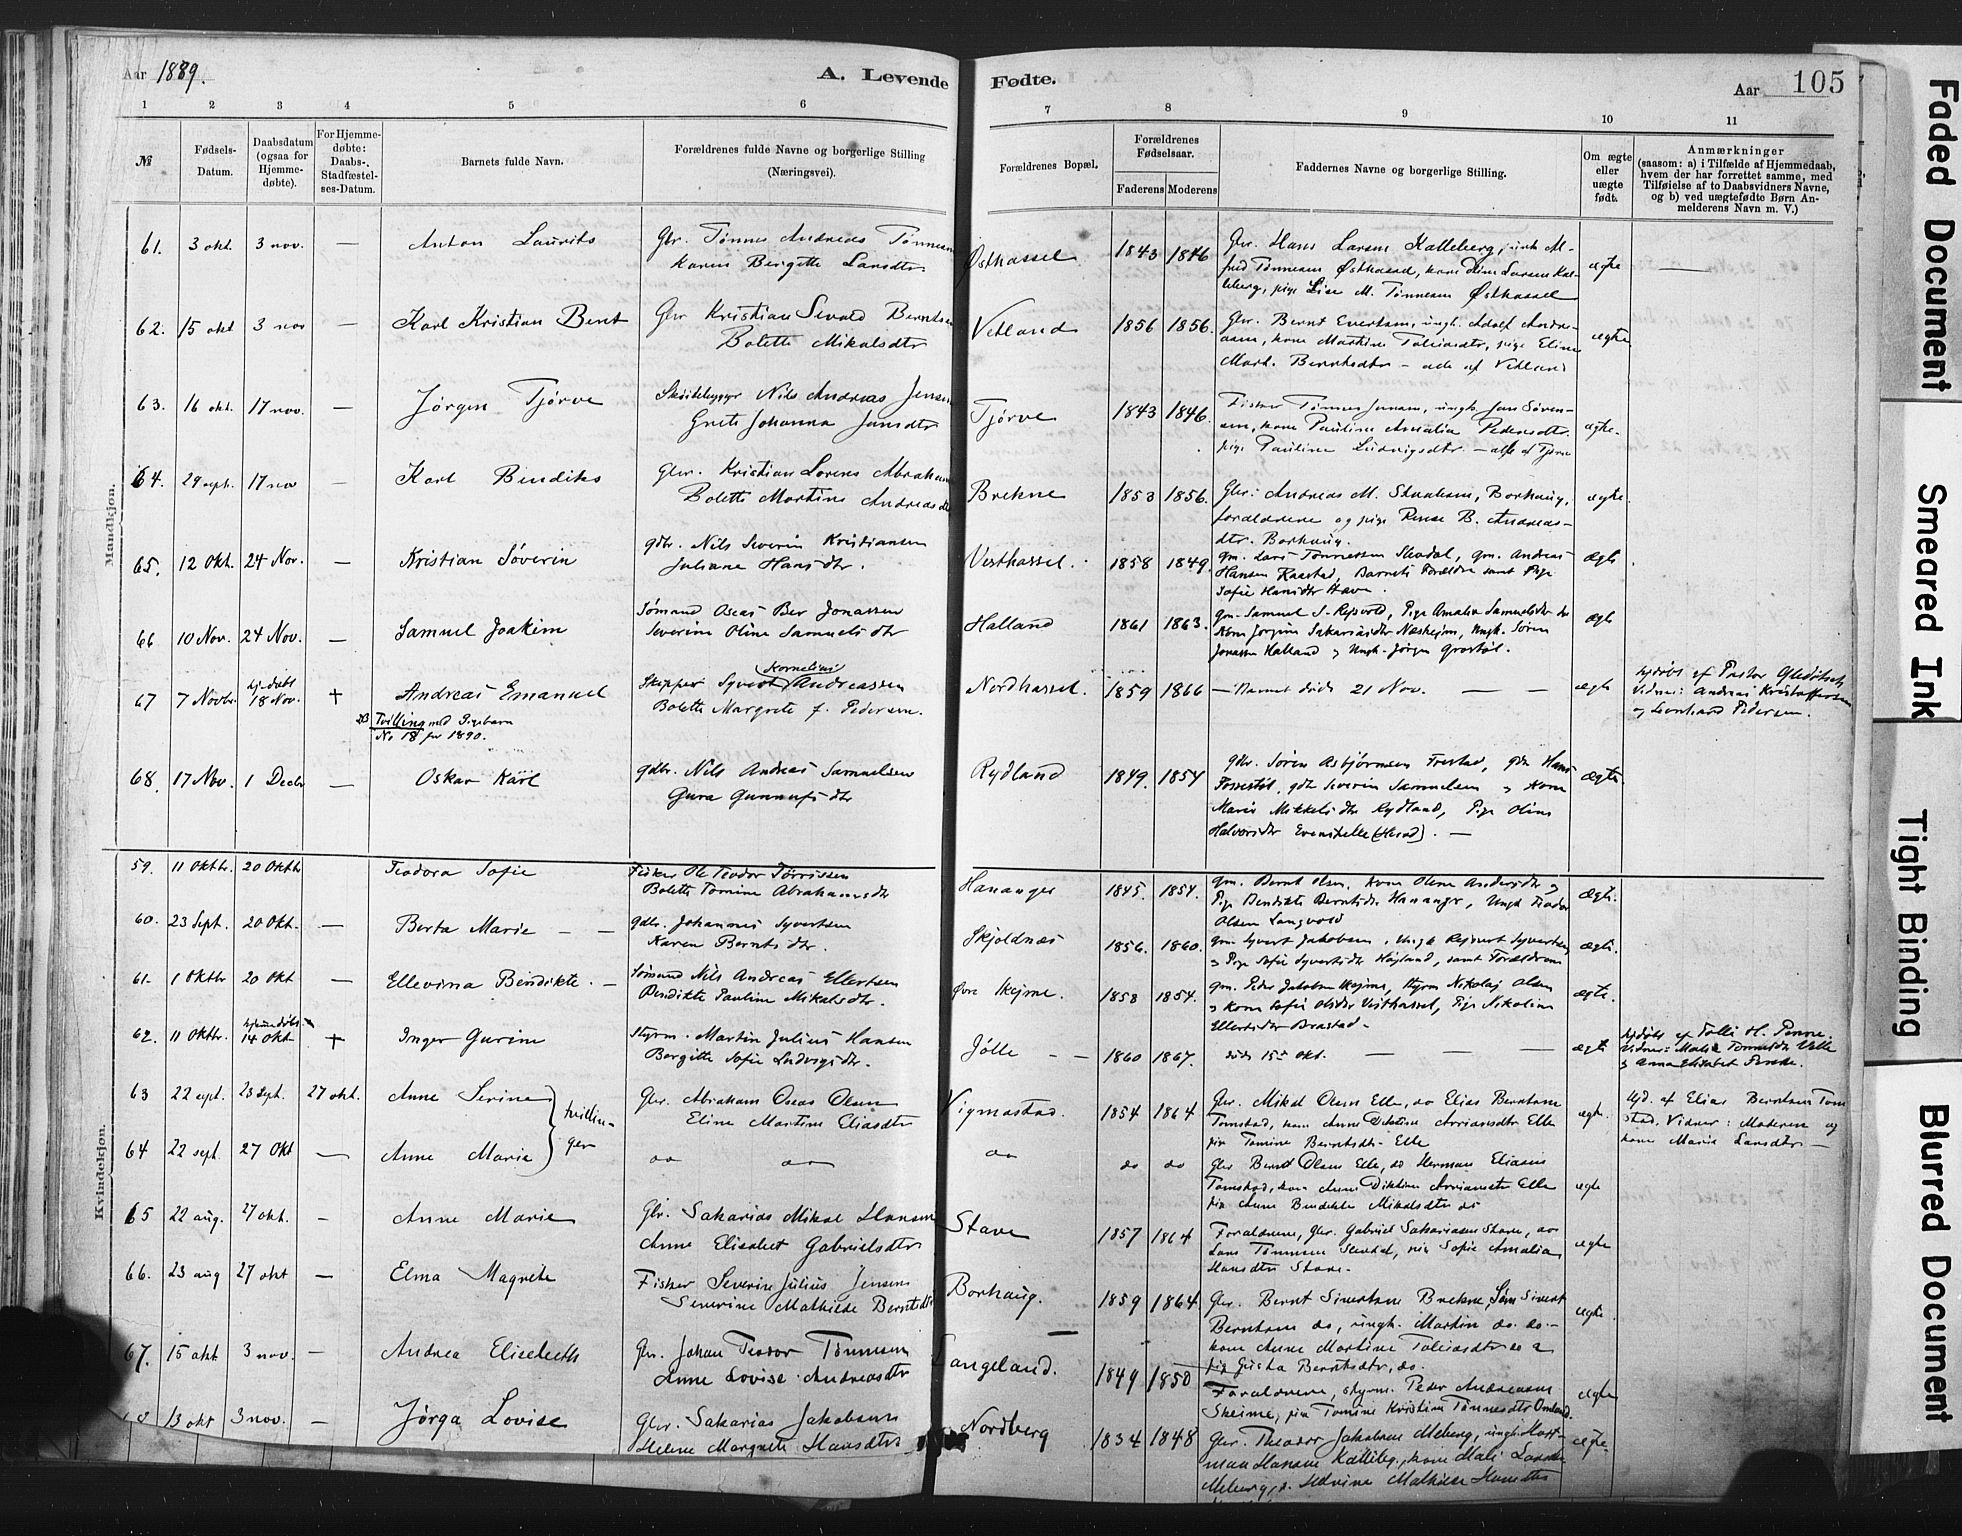 Aar 1889.
A. Levende Fødte.
Aar 105
1 2 3 4 5 6 7 8 9 10 11
№
Fødsels-
Datum.
Daabsdatum
(ogsaa for
Hjemme-
døbte).
For Hjemme-
døbte:
Daabs-.
Stadfæstel-
ses-Datum.
Barnets fulde Navn.
Forældrenes fulde Navne og borgerlige Stilling
(Næringsvei).
Forældrenes Bopæl.
Forældrenes
Fødselsaar.
Faderens Moderens
Faddernes Navne og borgerlige Stilling.
Om ægte
eller
uægte
født.
Anmærkninger
(saasom: a) i Tilfælde af Hjemmedaab,
hvem der har forrettet samme, med
Tilføielse af to Daabsvidners Navne,
og b) ved uægtefødte Børn An-
melderens Navn m. V.)
Mandkjøn.
61. 3 okt. 3 nov. — Anton Laurits
Gbr. Tønnes Andreas Tønnesen
Karen Bergitte Larsdtr
Østhassel 1843 1846
Gbr. Hans Larsen Kalleberg, ungk. M-
fred Tønnesen Østhassel, kone Oline Larsen Kal-
leberg, pige Lise M. Tønnesen Østhassel
ægte —
62. 15 okt 3 nov — Karl Kristian Bent
Gbr Kristian Sevald Berntsen
Bolette Mikalsdtr
Vetland 1856 1856.
Gbr. Bernt Evertsen, ungk. Adolf Andre-
asen, kone Martine Tobiasdtr, pige Eline
Mart. Berntsdtr - alle af Vetland
ægte
63. 16 okt. 17 nov. — Jørgen Tjørve
Skøitebygger Nils Andreas Jensen
Grete Johanna Jansdtr
Tjørve 1843 1846.
Fisker Tønnes Jensen, ungk. Jan Søren-
sen, kone Pauline Amalia Pedersdtr.
pige Pauline Ludvigsdtr. - alle af Tjørve
ægte.
64. 29 sept. 17 nov — Karl Bendiks
Gbr. Kristian Lorens Abraham
Bolette Martine Andreasdtr
Brekne 1853 1856.
Gbr: Andreas M. Borhaug,
forældrene og pige B. Andreas-
dtr. Borhaug.
ægte.
65. 12 Okt. 24 Nov. — Kristian Søverin
gdbr. Nils Severin Kristiansen
Juliane Hansdtr.
Vesthassel. 1858 1849.
gm. Lars Tønnessen Skadal, gm. Andreas
Hansen Raastad, Barnets Forældre samt Pige
Sofie Hansdtr Stave
ægte
66 10 Nov. 24 Nov. — Samuel Joakim
Sømand Oscas Ber Jonassen
Severine Oline Samuelsdtr
Halland 1861 1863.
gm. Samuel S. Rejsvold, Pige Amalia Samuelsdtr do
Kone Jorgine Sakariasdtr Næsheim, Ungk. Søren
Jonassen Halland og Ungk. Jørgen Grostøl.
ægte
67 7 Novbr. hj. døbt 18 Nov. + Andreas Emanuel
NB Tvilling med Pigebarn
No 18 for 1890.
Skipper Syvert Kornelius Andreassen
Bolette Margrete f. Pedersen.
Nordhassel. 1859 1866
— Barnet døde 21 Nov. — —
ægte
hjdøbt af Pastor Gleditsch
Vidner: Andreas Kristoffersen
og Leonhard Pedersen.
68. 17 Nov. 1 Decbr — Oskar Karl
gdbr. Nils Andreas Samuelsen
Gura Gunnufsdtr
Rydland 1849. 1854
gdbr. Søren Asbjørnsen Frestad, gdr Hans
gdr Severin Samuelsen og Kone
Marie Mikkelsdtr Rydland, Pige Oline
Halvorsdtr Evenshelle (Herad). —
ægte
Kvindekjøn.
59. 11 Oktbr 20 Oktbr Teodora Sofie
Fisker Ole Teodor Tørrissen
Bolette Tomine Abrahamsdtr
Hananger 1845. 1854.
gm. Bernt Olsen, Kone Olene Andersdtr og
Pige Bendikte Berntsdtr Hananger, Ungk Teodor
Olsen Langvold
ægte.
60. 23 Sept. 20 Okt. — Berta Marie — —
gdbr. Johannes Syvertsen
Karen Berntsdtr.
Skjoldnæs 1856. 1860.
gm Syvert Jakobsen, Ungk Rejnert Syvertsen
og Pige Sofie Syvertsdtr Højland, samt Forældrene
ægte.
61. 1 Oktbr 20 Okt — Ellevina Bendikte. —
Sømand Nils Andreas Ellertsen
Bendikte Pauline Mikalsdtr.
Øvre Skejme. 1853 1854.
gm. Peder Jakobsen Skejme, Styrm Nikolaj Olsen
og Kone Sofie Olsdtr Vesthassel, Pige Nikoline
Ellertsdtr Brastad.
ægte.
62. 11 Oktbr. hjemmedøbt 14 Okt + Inger Gurine
Styrm. Martin Julius Hansen
Bergitte Sofie Ludvigsdtr.
Jølle — — 1860 1867.
døde 15de Okt. — — —
ægte
hjdøbt af Tolli H. Penne.
Vidner: Malene Tomasdtr Velle
og Anna Elisabet Penne.
63 22 sept. 23 Sept. 27 okt. Anne Serine
tvillin-
ger
Gbr. Abraham Oscas Olsen
Eline Martine Eliasdtr
Vigmostad 1854 1864
Gbr. Mikal Olsen Elle, do Elias Berntsen
Tomstad, kone Anne Diktine Arriansdtr Elle
pig Tomine Berntsdtr- Elle
ægt.
Hjd. af Elias Berntsen Tom
stad. Vidner: Moderen og
kone Maria Larsdtr —
64 22 sept. 27 Okt — Anne Maria
do do
do do do
Gbr Bernt Olsen Elle, do Herman Eliasen
Tomstad, kone Anne Diktine Arriansdtr Elle
pig Anne Bendikte Mikalsdtr do
ægte
65 22 aug. 27 okt. — Anne Marie
Gbr. Sakarias Mikal Hansen
Anne Elisabet Gabrielsdtr
Stave 1857 1864
Forældrene, Gbr. Gabriel Sakariassen Stave, do
Lars Tønnesen Skadal, pig Sofie Amalia
Hansdtr Stave.
ægte
66. 23 aug 27 okt — Elma Magrete
Fisker Severin Julius Jensen
Severine Mathilde Berntsdtr
Borhaug. 1859 1864
Gbr. Bernt Sivertsen Brekne, Søm Sivert
Berntsen do, ungk. Martin do. do.-
kone Anne Martine Tobiasdtr do
pig Gusta Berntsdtr, do.
ægte.
67. 15 okt 3 nov. — Andrea Elisebeth
Gbr. Johan Teodor Tønnesen
Anne Lovise Andreasdtr
Langeland. 1849 1850
Forældrene, styrm. Peder Andreasen
Skeime, pig Tomine Kristine Tønnesdtr Omland.
ægte
68 13 okt 3 nov. — Jørga Lovise
Gbr. Sakarias Jakobsen
Helene Margrete Hansdtr
Nordberg 1834 1848
Gbr. Theodor Jakobsen Meberg, ungk Hart-
man Hansen Kalleberg, kone Mali Larsdtr
Meberg, p. Edvine Mathilde Hansdtr
ægte.
Faded Document
Smeared Ink
Tight Binding
Blurred Document